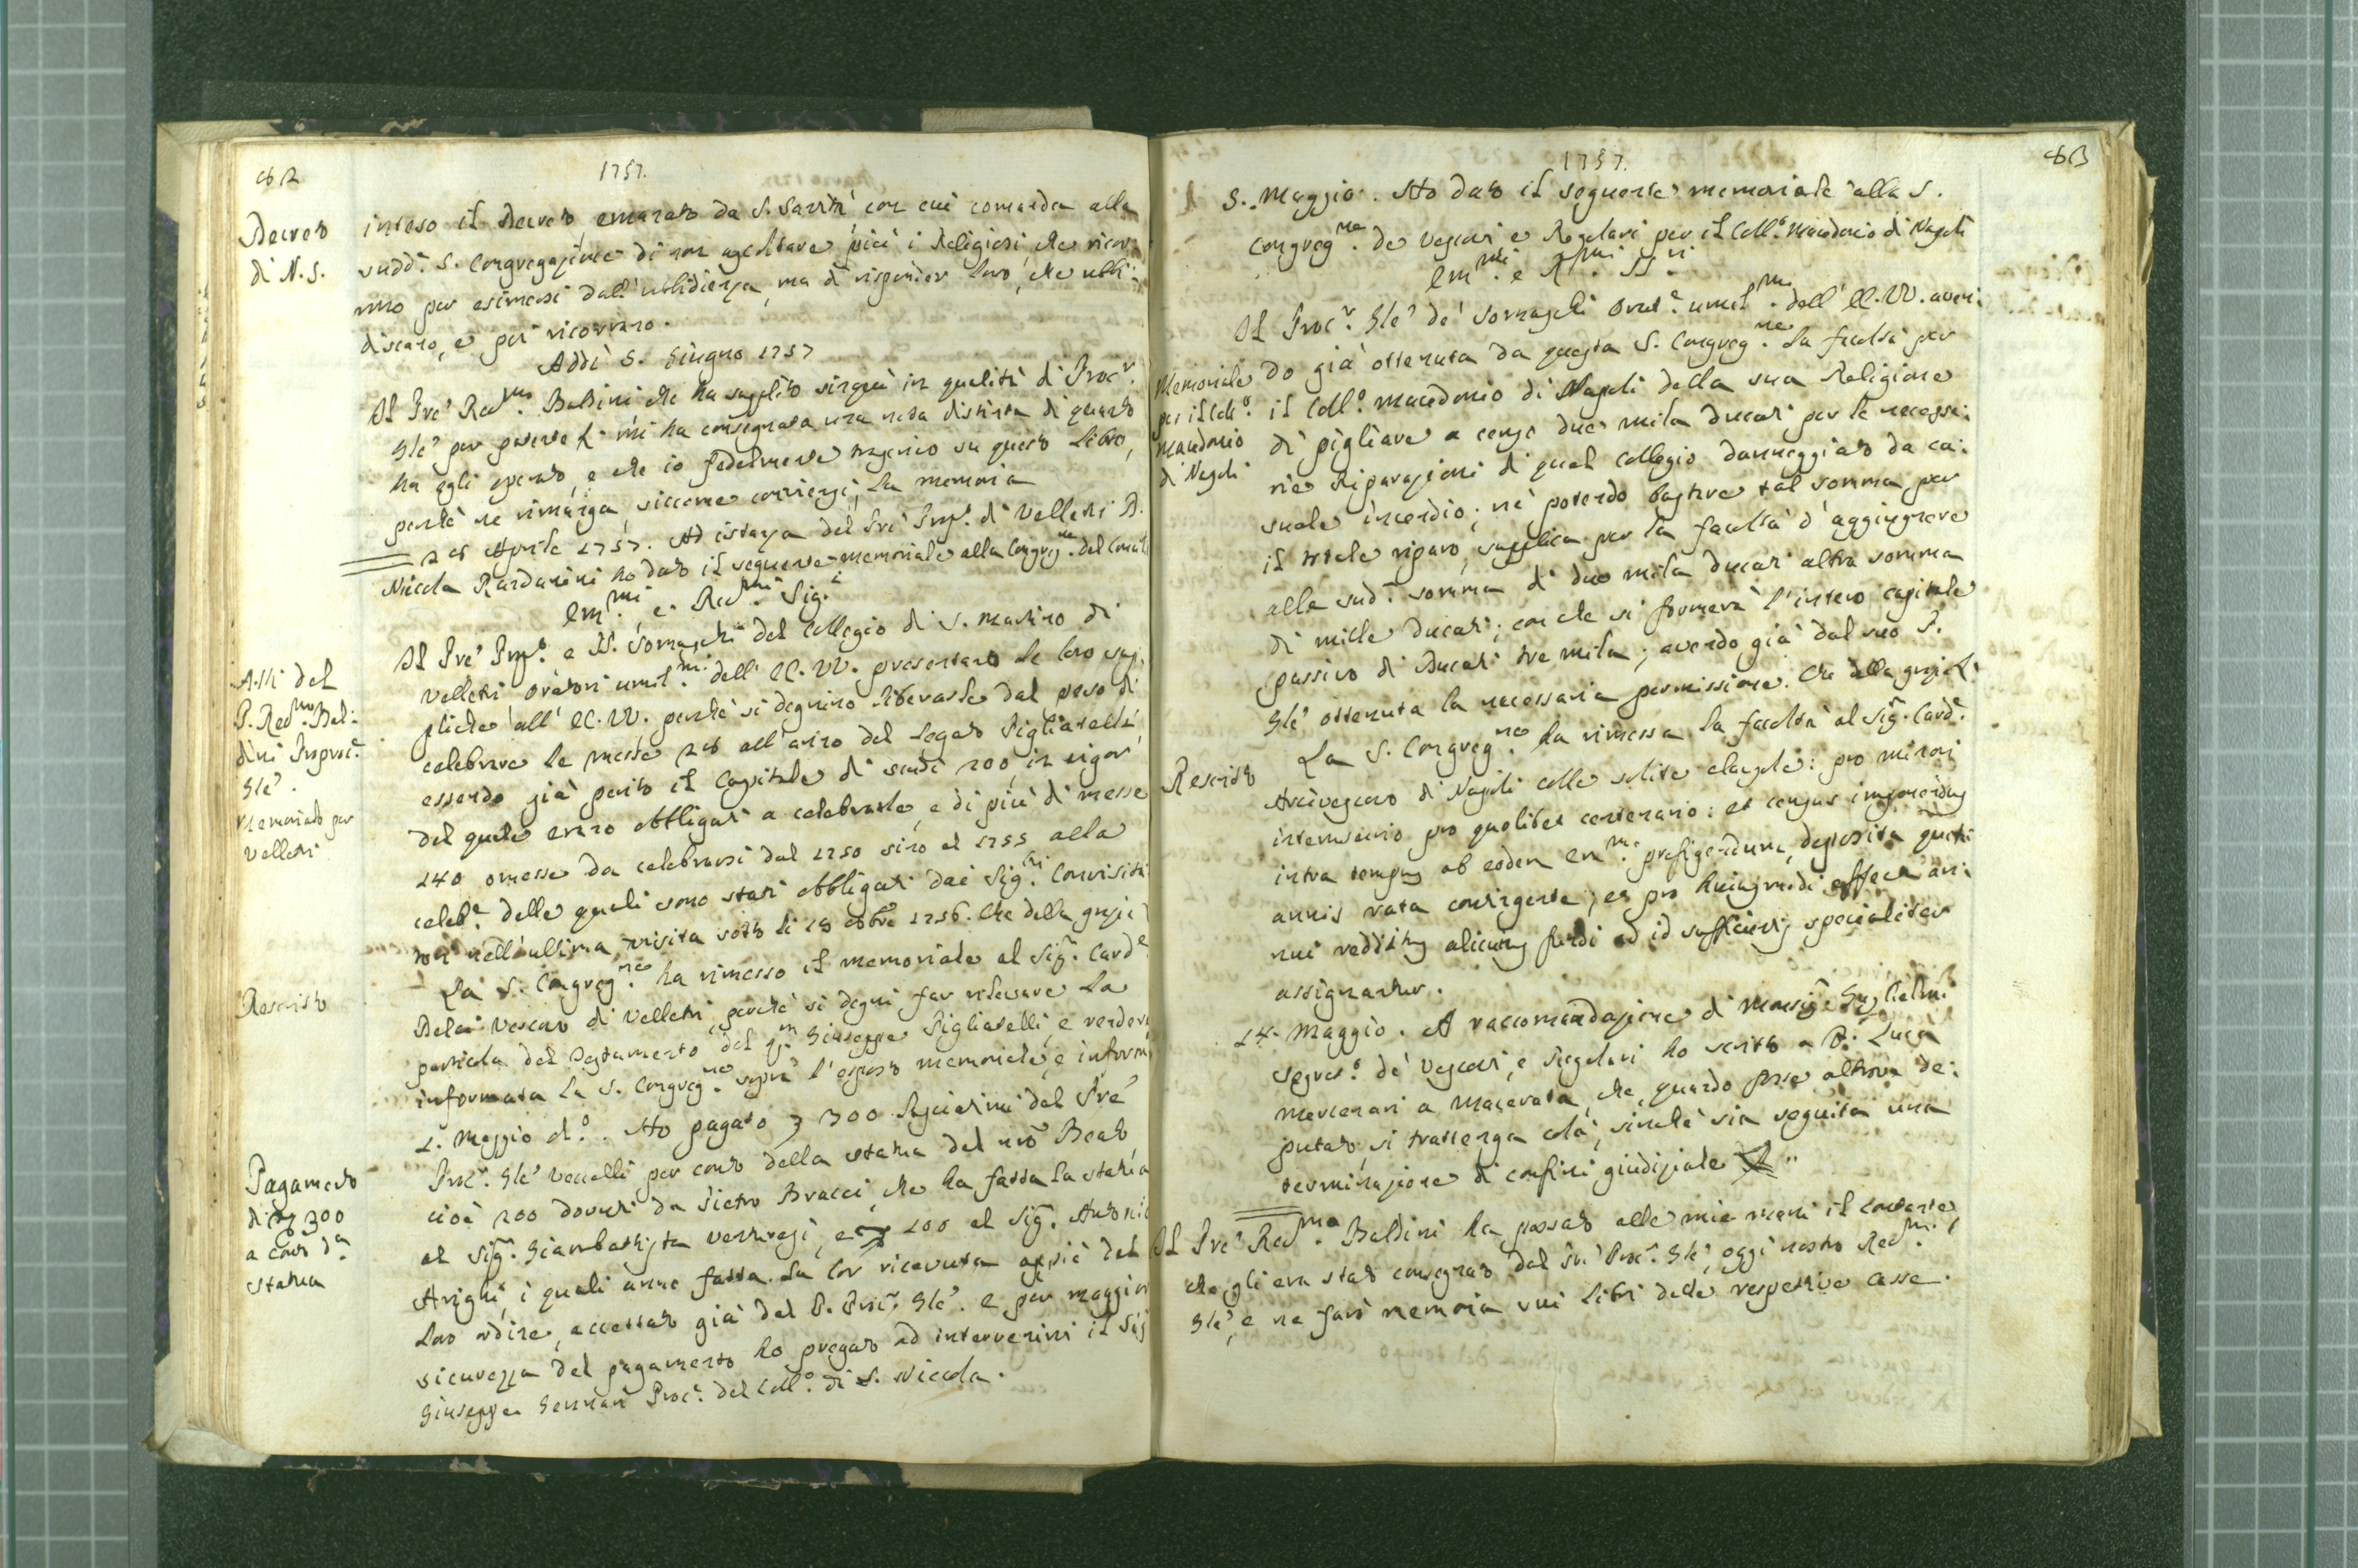 82
1757.
Decreto
di N. S.
inteso il Decreto emanato da S. Santità con cui comanda alla
sudd.a S. Congregazione di non ascoltare più i Religiosi, che ricor:
rono per esimersi dall'ubbidienza, ma di risponder loro, che ubbi:
discano, e poi ricorrano.
Addì 5. Giugno 1757
Il Pre' Red.mo Baldini che ha supplito sinquì in qualità di Proc.r
Gle' per poterse li mi ha consegnata una nota distinta di quanto
ha egli operato, e che io fedelmente trascrivo su questo Libro,
perchè ne rimanga, siccome conviensi, la memoria
28 Aprile 1757. Ad istanza del Pre' Prep.o di Velletri D.
Nicola Rardanini ho dato il seguente memoriale alla Congreg.ne del Concil
Em.mi e Red.mi Sig.i
Atti del
P. Red.mo Bal:
dini Proproc.r
Gle'.
Memoriale per
Velletri
Il Pre' Prep.o e PP. Somaschi del Collegio di S. Martino di
Velletri Oratori umil.mi dell' EE. VV. presentano le loro sup:
pliche all' EE. VV. perchè si degnino liberarle dal peso di
celebrare le messe 28 all'anno del Legato Pigliatelli,
essendo già perito il Capitale di scudi 200, in vigor
del quale erano obbligati a celebrarle, e di più di messe
240 omesse da celebrarsi dal 1750 sino al 1755 alla
celeb.e delle quali sono stati obbligati dai Sig.ri Convisita:
tori nell'ultima visita sotto li 19 8bre 1756. Che della grazie
Rescritto
La S. Congreg.ne ha rimesso il memoriale al Sig. Card.e
Delci Vescovo di Velletri, perchè si degni far rilevare la
particola del Testamento del qm Giuseppe Pigliatelli, e render
informata la S. Congreg.ne sopra l'esposto memoriale, e inform
Pagamento
di 300
a conto d.a
statua
1. Maggio d.o. Ho pagato 300 lasciatimi dal Pre'
Proc.r Gle' Vecelli per conto della statua del nro Beato
cioè 200 dovuti da Pietro Bracci, che ha fatta la statua
al Sig. Giambattista Verstregi, e 100 al Sig. Antonio
Arighi, i quali anno fatta la lor ricevuta appiè del
loro ordine, accettato già dal P. Proc.r Gle'. e per maggior
sicurezza del pagamento ho pregato ad intervenirvi il Sig
Giuseppe Gennari Proc.e del Coll.o di S. Nicola.
1757.
83
5. Maggio. Ho dato il seguente memoriale alla S.
Congreg.ne de Vescovi e Regolari per il Coll.o Macedonio di Napoli
Em.mi e R.mi SS.ri
Memoriale
per il Coll.o
Macedonio
di Napoli
Il Proc.r Gle' de' Somaschi Orat.e umil.mo dell' EE. VV. aven:
do già ottenuta da questa S. Congreg.ne la facoltà per
il Coll.o Macedonio di Napoli della sua Religione
di pigliare a censo due mila ducati per le necessa:
rie Riparazioni di quel collegio danneggiato da ca:
suale incendio; nè potendo bastare tal somma per
il totale riparo, supplica per la facoltà d'aggiugnere
alla sud.a somma di due mila ducati altra somma
di mille ducati; con che si formerà l'intero capitale
passivo di Ducati tre mila; avendo già dal suo P.
Gle' ottenuta la necessaria permissione. Che della grazia
Rescritto
La S. Congreg.ne ha rimessa la facoltà al Sig. Card.e
Arcivescovo di Napoli colle solite clausole: pro minori
interusurio pro quolibet centenario: et census imponendus
intra tempus ab eodem Em.mo prefigendum, deposita quotis
annis rata contingente; et pro huiusmodi effectu an:
nui redditus alicuius fundi ad id sufficientis specialiter
assignantur.
14. Maggio. A raccomandazione di Monsig. Guglielmi
Segret.o de' Vescovi, e Regolari ho scritto a D. Luca
Mercenari a Macerata, che, quando fosse altrove de:
putato, si trattenga colà, sinchè sia seguita una
terminazione di confini giudiziale
Il Pre' Red.mo Baldini ha passato alle mie mani il contante,
che gli era stato consegnato dal fu Proc.r Gle', oggi nostro Red.mo
Gle', e ne farò memoria sui Libri delle respettive Casse.